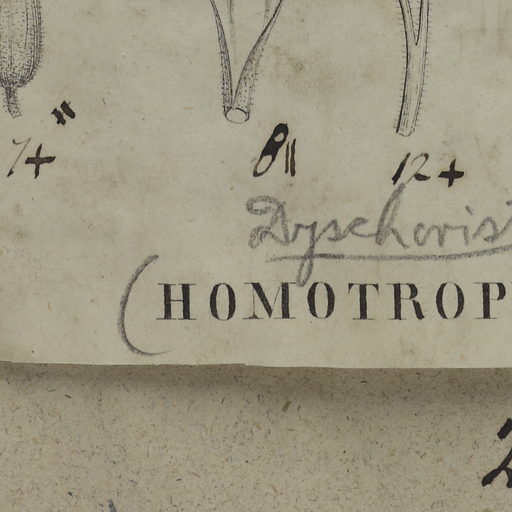 7+"
8"
12+
Dyschorist
(HOMOTROP
2